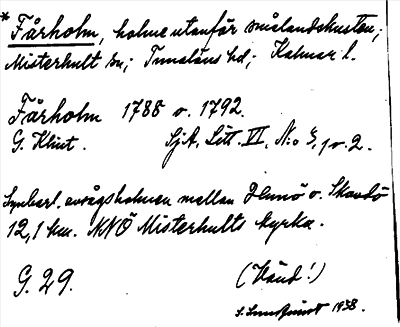 * Fårholm, holme utanför smålandskusten;
Misterhult sn; Tunaläns hd; Kalmar l.
Fårholm 1788 o. 1792.
G. Klint. SjA, Litt. VI, N:o 3, 1 o. 2.
Synbarl. avsågsholmen mellan Hunö o. Skavdö
12,1 km. NNÖ Misterhults kyrka.
G. 29. (Vänd!)
1938.